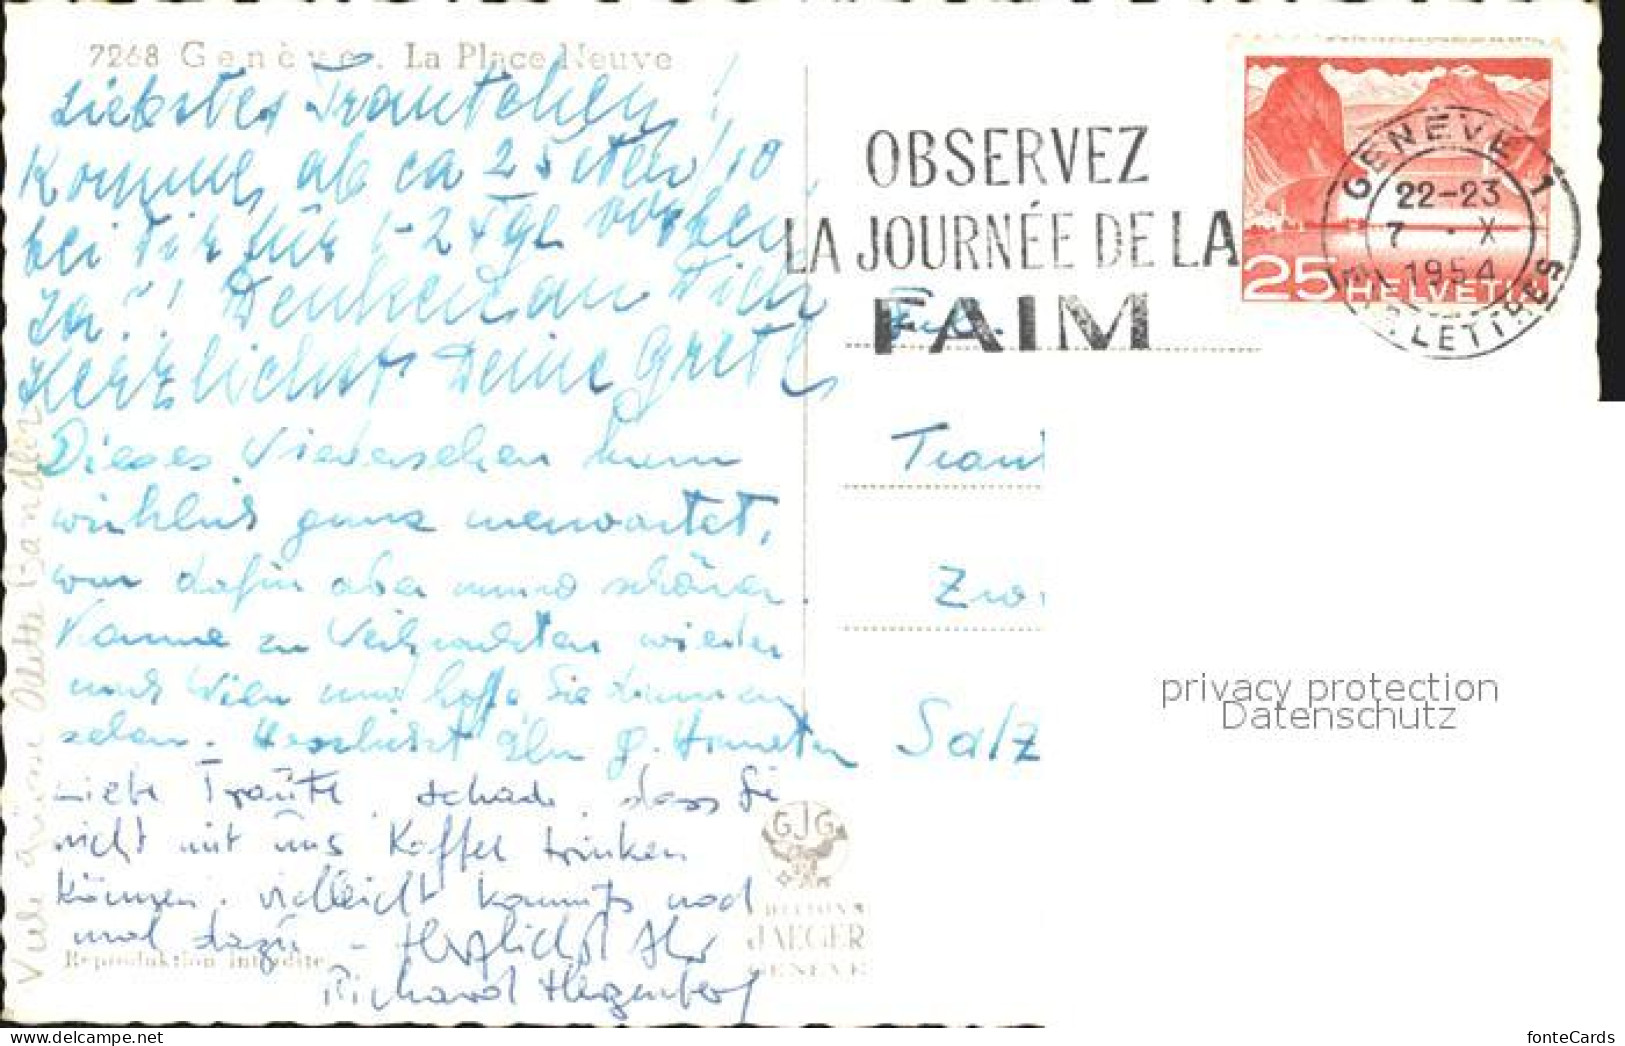 7268 Genève. La Place Neuve
Liebstes Trautchen!
Komme ab ca 25 ten/10
bei Dir für 1-2 Tge vorbei
Ja?! Denke an Dich
Herzlichst Deine Gretl
Dieses Wiedersehen kam
wirklich ganz unerwartet,
war dafür aber umso schöner.
Komme zu Weihnachten wieder
nach Wien und hoffe Sie dann zu
sehen. Herzlichst Ihr
Liebe Traute, schade, dass Sie
nicht mit uns Kaffee trinken
können. vielleicht kommts noch
mal dazu - Herzlichst Ihr
Richard Herzenberg
Viele Grüsse Odette Bandler
Reproduktion interdite
GJG
EDITIONS
JAEGER
GENEVE
OBSERVEZ
LA JOURNÉE DE LA
FAIM
25 HELVETIA
GENEVE 1
22-23
7 . X
1954
LETTRES
Trau
Salz
privacy protection
Datenschutz
fonteCards